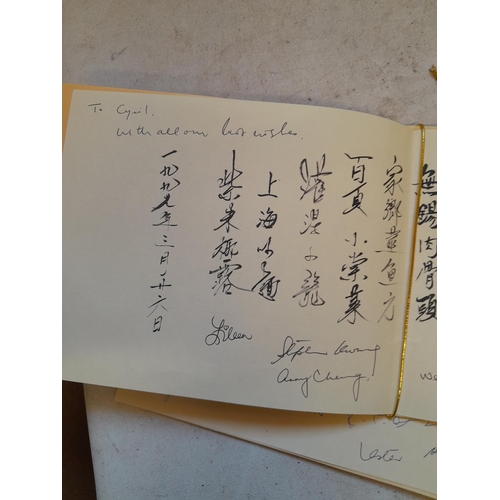 To Cyril,
With all our best wishes.
無錫肉骨頭
家鄉薰魚方
百頁小棠菜
灌湯小籠
上海小
紫米椰露
一九九七年三月廿六日
Eileen
Stephen
Amy Cheng
We
Lester